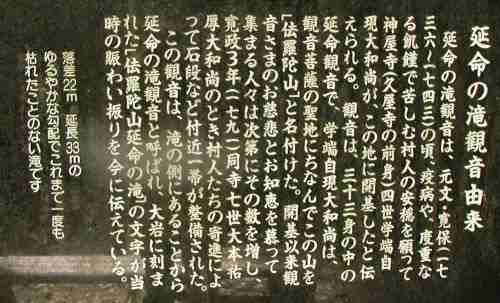 延命の滝観音由来
延命の滝観音は、元文・寛保(一七
三六〜一七四三)の頃、疫病や、度重な
る飢饉で苦しむ村人の安穏を願って
神屋寺(久屋寺の前身)四世学端自
現大和尚が、この地に開基したと伝
えられる。観音は、三十三身の中の
延命観音で、学端自現大和尚は、
観音菩薩の霊地にちなんでこの山を
「佉羅陀山」と名付けた。開基以来観
音さまのお慈悲とお知恵を慕って
集まる人々は次第にその数を増し、
寛政3年(一七九一)同寺七世大本祐
厚大和尚のとき村人たちの寄進によ
って石段など付近一帯が整備された。
この観音は、滝の側にあることから
延命の滝観音と呼ばれ、大岩に刻ま
れた「佉羅陀山延命の滝」の文字が当
時の賑わい振りを今に伝えている。
落差22m 延長33mの
ゆるやかな勾配でこれまで一度も
枯れたことのない滝です